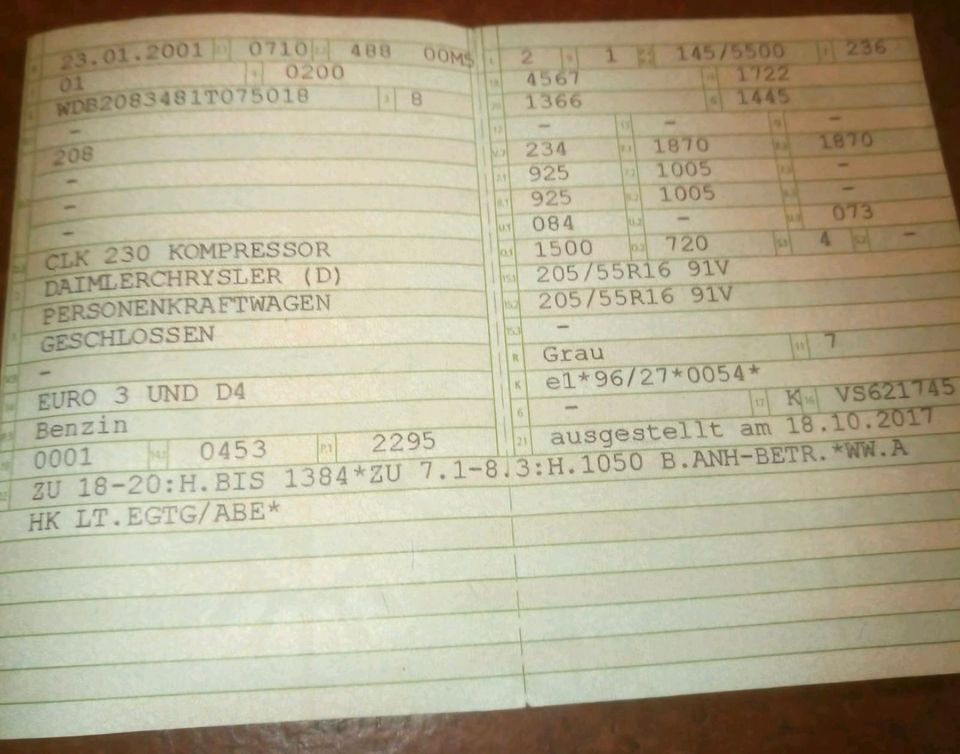 23.01.2001 0710 488 00M$
01 0200
WDB2083481T075018 8
–
208
–
–
–
CLK 230 KOMPRESSOR
DAIMLERCHRYSLER (D)
PERSONENKRAFTWAGEN
GESCHLOSSEN
–
EURO 3 UND D4
Benzin
0001 0453 P.1 2295
2 1 145/5500 236
4567 1722
1366 1445
– – –
234 1870 1870
925 1005 –
925 1005 –
084 – 073
1500 720 4 –
205/55R16 91V
205/55R16 91V
–
R Grau 11 7
K e1*96/27*0054*
6 – 17 K 16 VS621745
21 ausgestellt am 18.10.2017
ZU 18-20:H.BIS 1384*ZU 7.1-8.3:H.1050 B.ANH-BETR.*WW.A
HK LT.EGTG/ABE*